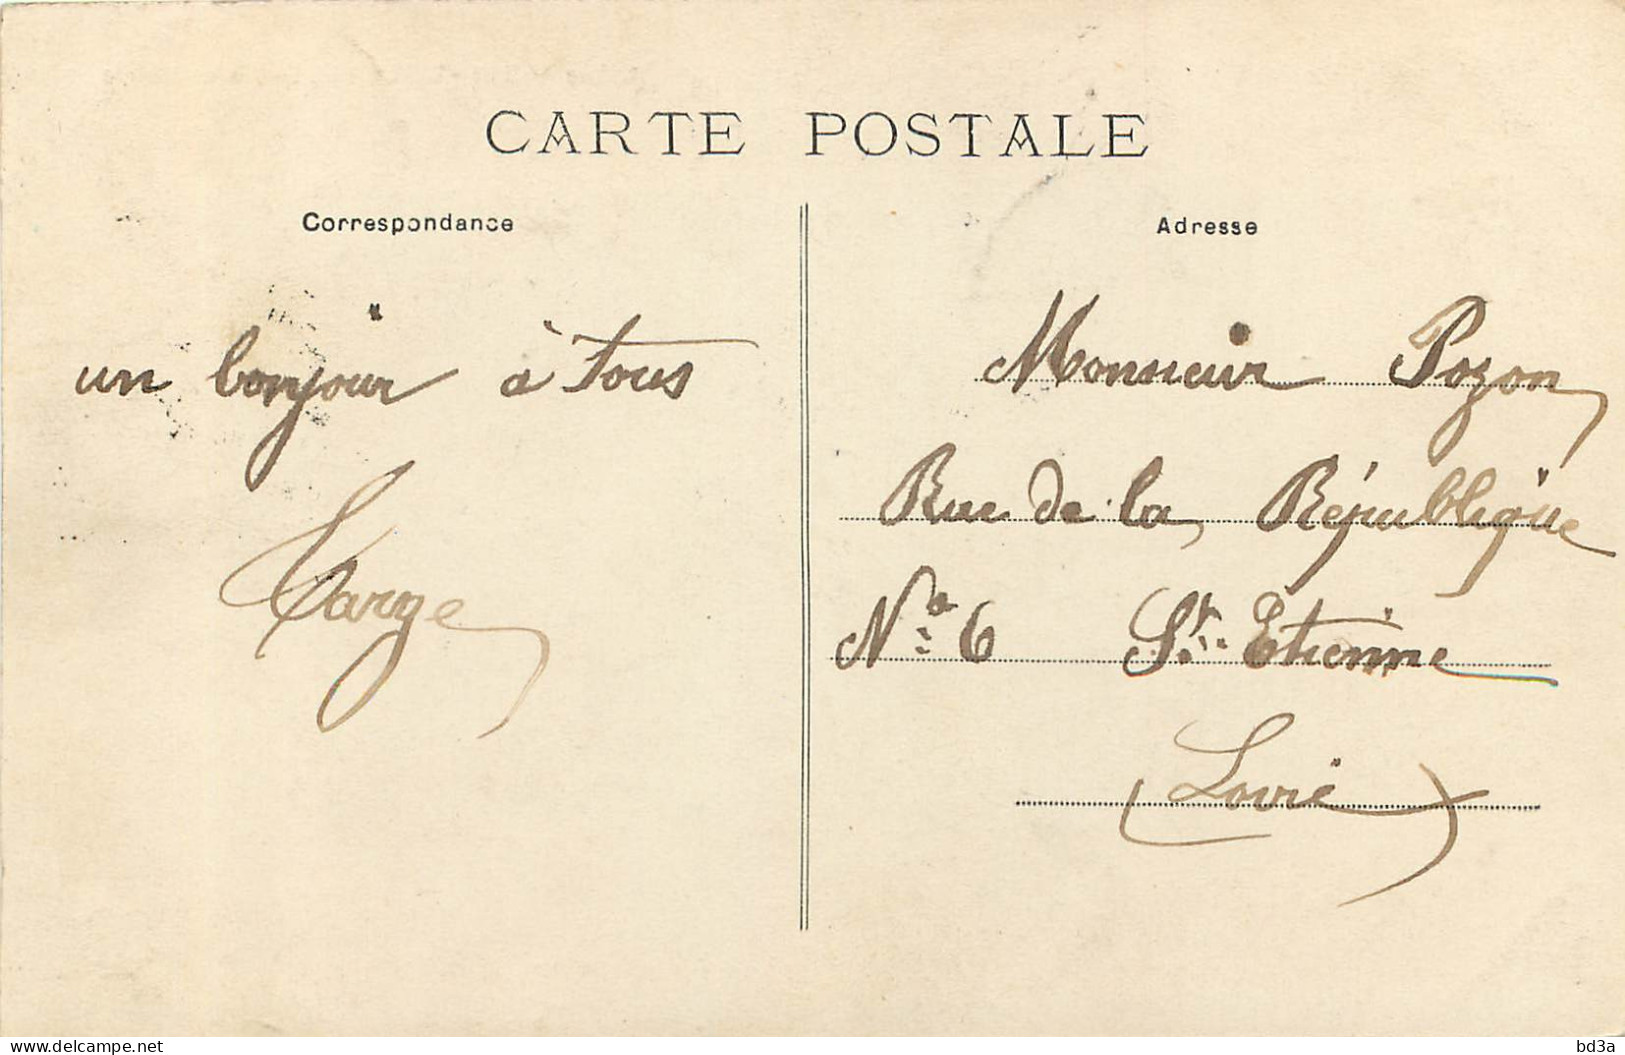 CARTE POSTALE
Correspondance
Adresse
un bonjour à Tous
Targe
Monsieur Pozon
Rue de la République
N° 6 St. Etienne
(Loire)
delcampe.com
bd3a